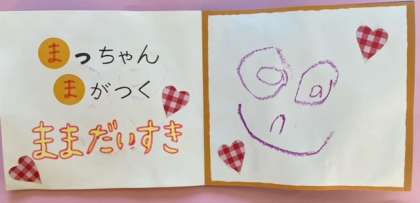 まっちゃん
まがつく
ままだいすき